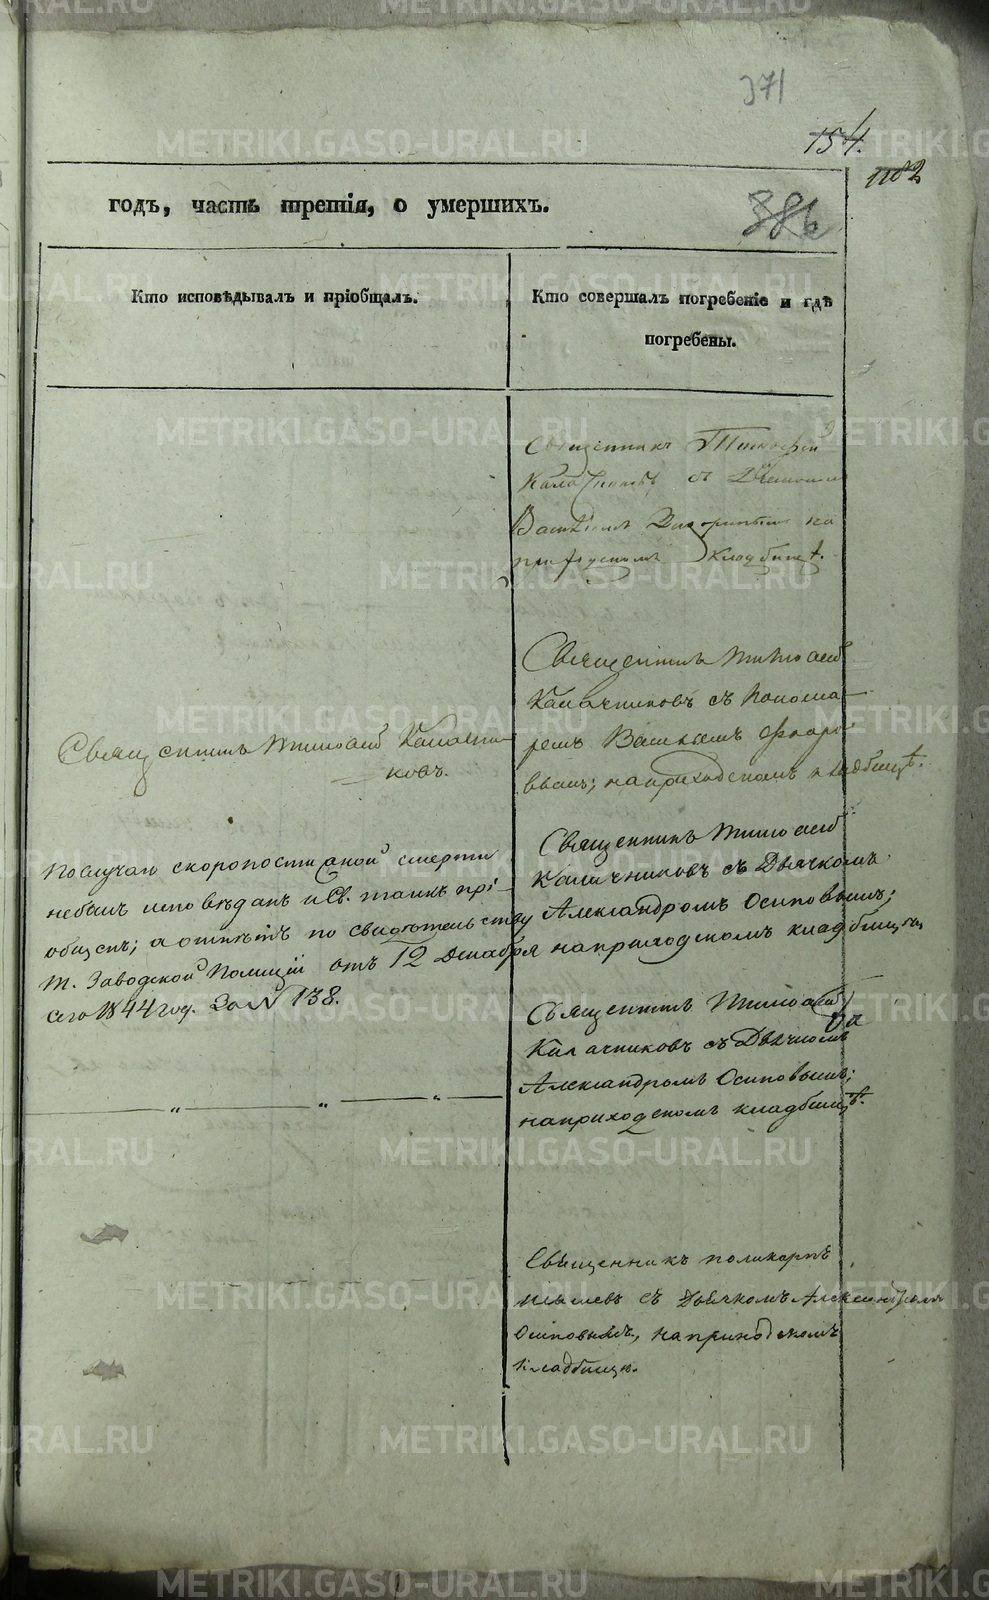 371
154.
1182
годъ, часть третія, о умершихъ.
386
Кто исповѣдывалъ и пріобщалъ.
Кто совершалъ погребеніе и гдѣ
погребены.
Священникъ Тимофей
съ
Васильемъ на
приходскомъ кладбищѣ.
Священникъ Тимофей
Калачниковъ съ Понома-
ремъ Васильемъ
на приходскомъ кладбищѣ.
Священникъ Тимофей Калачни-
ковъ.
Священникъ Тимофей
Калачниковъ съ Дьячкомъ
Александромъ Осиповымъ;
на приходскомъ кладбищѣ
По случаю скоропостижной смерти
небылъ исповѣданъ и Св. таинъ прі-
общенъ; а отпѣтъ по свидѣтельству
Т. Заводской Полиціи отъ 12 Декабря
сего 1844 год. За № 138.
Священникъ Тимофей
Калачниковъ съ Дьячкомъ
Александромъ Осиповымъ;
на приходскомъ кладбищѣ.
Священникъ Поликарпъ
съ Дьячкомъ Александромъ
Осиповымъ, на приходскомъ
кладбищѣ.
METRIKI.GASO-URAL.RU